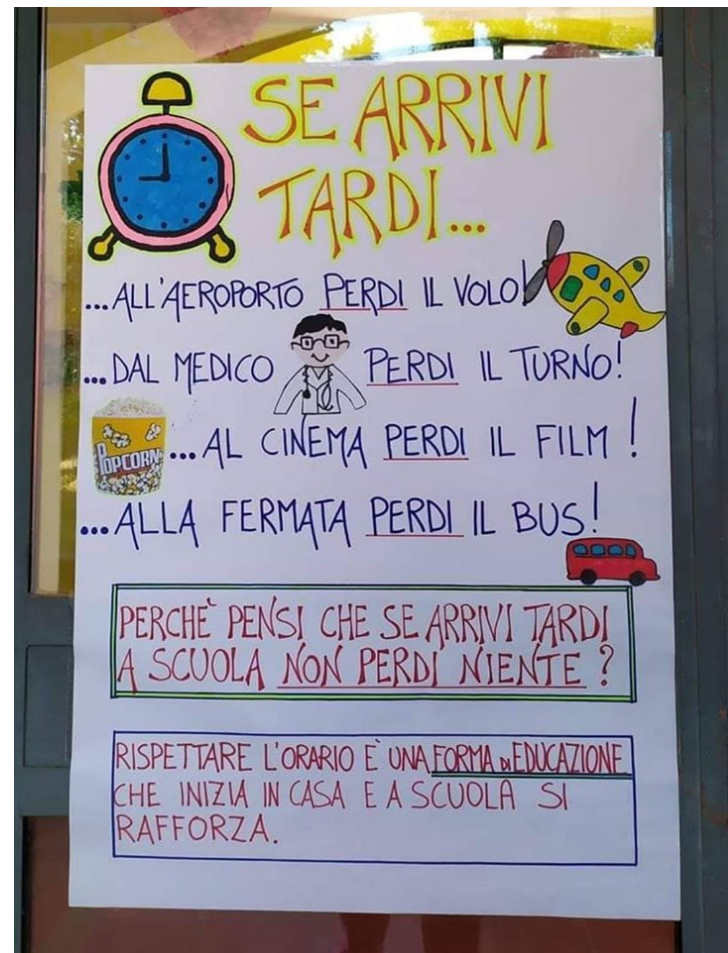 SE ARRIVI
TARDI...
...ALL'AEROPORTO PERDI IL VOLO!
...DAL MEDICO PERDI IL TURNO!
POPCORN
...AL CINEMA PERDI IL FILM !
...ALLA FERMATA PERDI IL BUS!
PERCHÈ PENSI CHE SE ARRIVI TARDI
A SCUOLA NON PERDI NIENTE ?
RISPETTARE L'ORARIO È UNA FORMA DI EDUCAZIONE
CHE INIZIA IN CASA E A SCUOLA SI
RAFFORZA.